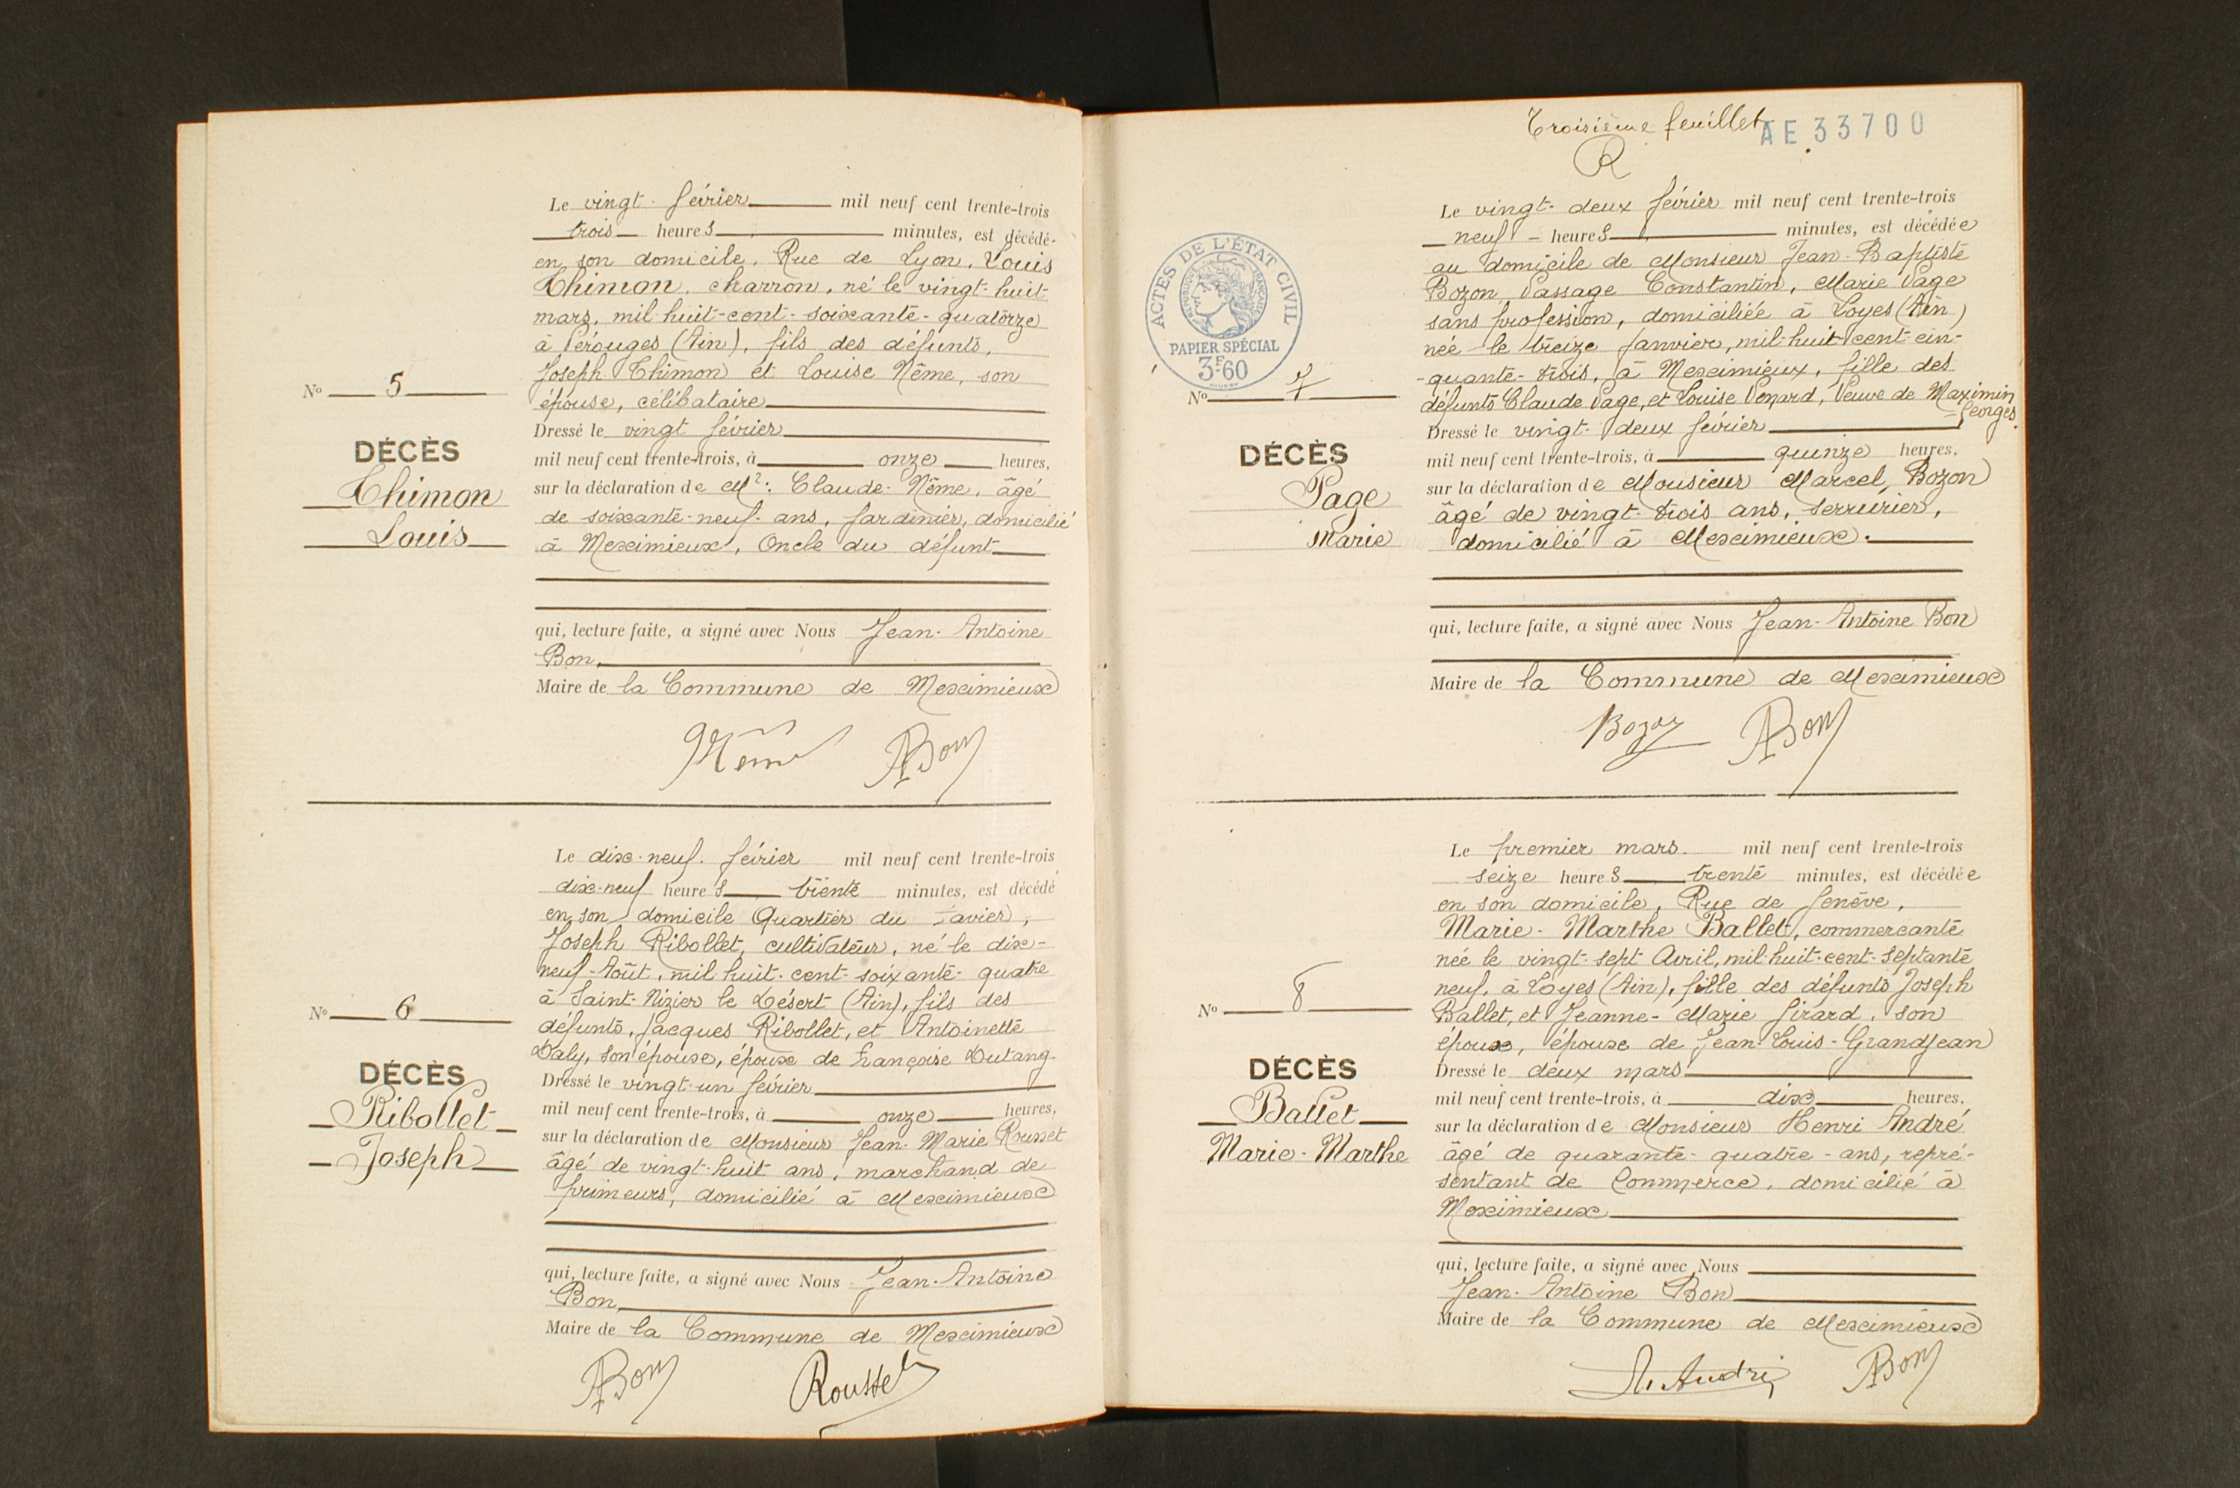 Le vingt février mil neuf cent trente-trois
trois heures minutes, est décédé
en son domicile, Rue de Lyon, Louis
Thimon, charron, né le vingt-huit
mars, mil-huit-cent-soixante-quatorze
à Pérouges (Ain), fils des défunts,
Joseph Thimon et Louise Nême, son
épouse, célibataire
Dressé le vingt février
mil neuf cent trente-trois, à onze heures,
sur la déclaration de Mr: Claude Nême, âgé
de soixante-neuf ans, jardinier, domicilié
à Meximieux, Oncle du défunt
qui, lecture faite, a signé avec Nous Jean-Antoine
Bon,
Maire de la Commune de Meximieux
Nême ABon
No 5
DÉCÈS
Thimon
Louis
Le dix-neuf février mil neuf cent trente-trois
dix-neuf heures trente minutes, est décédé
en son domicile Quartier du
Joseph Ribollet, cultivateur, né le dix-
neuf-Août, mil huit-cent-soixante-quatre
à Saint-Nizier le Désert (Ain), fils des
défunts, Jacques Ribollet, et Antoinette
Daly, son épouse, époux de Françoise Dutang
Dressé le vingt-un février
mil neuf cent trente-trois, à onze heures,
sur la déclaration de Monsieur Jean-Marie
âgé de vingt-huit ans, marchand de
primeurs, domicilié à Meximieux
qui, lecture faite, a signé avec Nous Jean-Antoine
Bon,
Maire de la Commune de Meximieux
ABon Roussel
No 6
DÉCÈS
Ribollet
Joseph
Troisième feuillet
AE 33700
R
ACTES DE L'ÉTAT CIVIL
PAPIER SPÉCIAL
3F60
Le vingt-deux février mil neuf cent trente-trois
neuf heures minutes, est décédée
au domicile de Monsieur Jean-Baptiste
Bozon, Passage Constantin, Marie Page
sans profession, domiciliée à Loyes (Ain)
née le treize janvier, mil-huit-cent-cin-
-quante-trois, à Meximieux, fille des
défunts Claude Page, et Louise Penard, Veuve de Maximin
Georges.
Dressé le vingt-deux février
mil neuf cent trente-trois, à quinze heures,
sur la déclaration de Monsieur Marcel Bozon
âgé de vingt-trois ans, serrurier,
domicilié à Meximieux.
qui, lecture faite, a signé avec Nous Jean-Antoine Bon
Maire de la Commune de Meximieux
Bozon ABon
No 7
DÉCÈS
Page
Marie
Le premier mars mil neuf cent trente-trois
seize heures trente minutes, est décédée
en son domicile, Rue de Genève,
Marie-Marthe Ballet, commercante
née le vingt-sept Avril, mil-huit-cent-septante
neuf, à Loyes (Ain), fille des défunts Joseph
Ballet, et Jeanne-Marie Girard, son
épouse, épouse de Jean-Louis-Grandjean
Dressé le deux mars
mil neuf cent trente-trois, à dix heures,
sur la déclaration de Monsieur Henri André
âgé de quarante-quatre-ans, repré-
sentant de Commerce, domicilié à
Meximieux
qui, lecture faite, a signé avec Nous
Jean-Antoine Bon
Maire de la Commune de Meximieux
H. André ABon
No 8
DÉCÈS
Ballet
Marie-Marthe